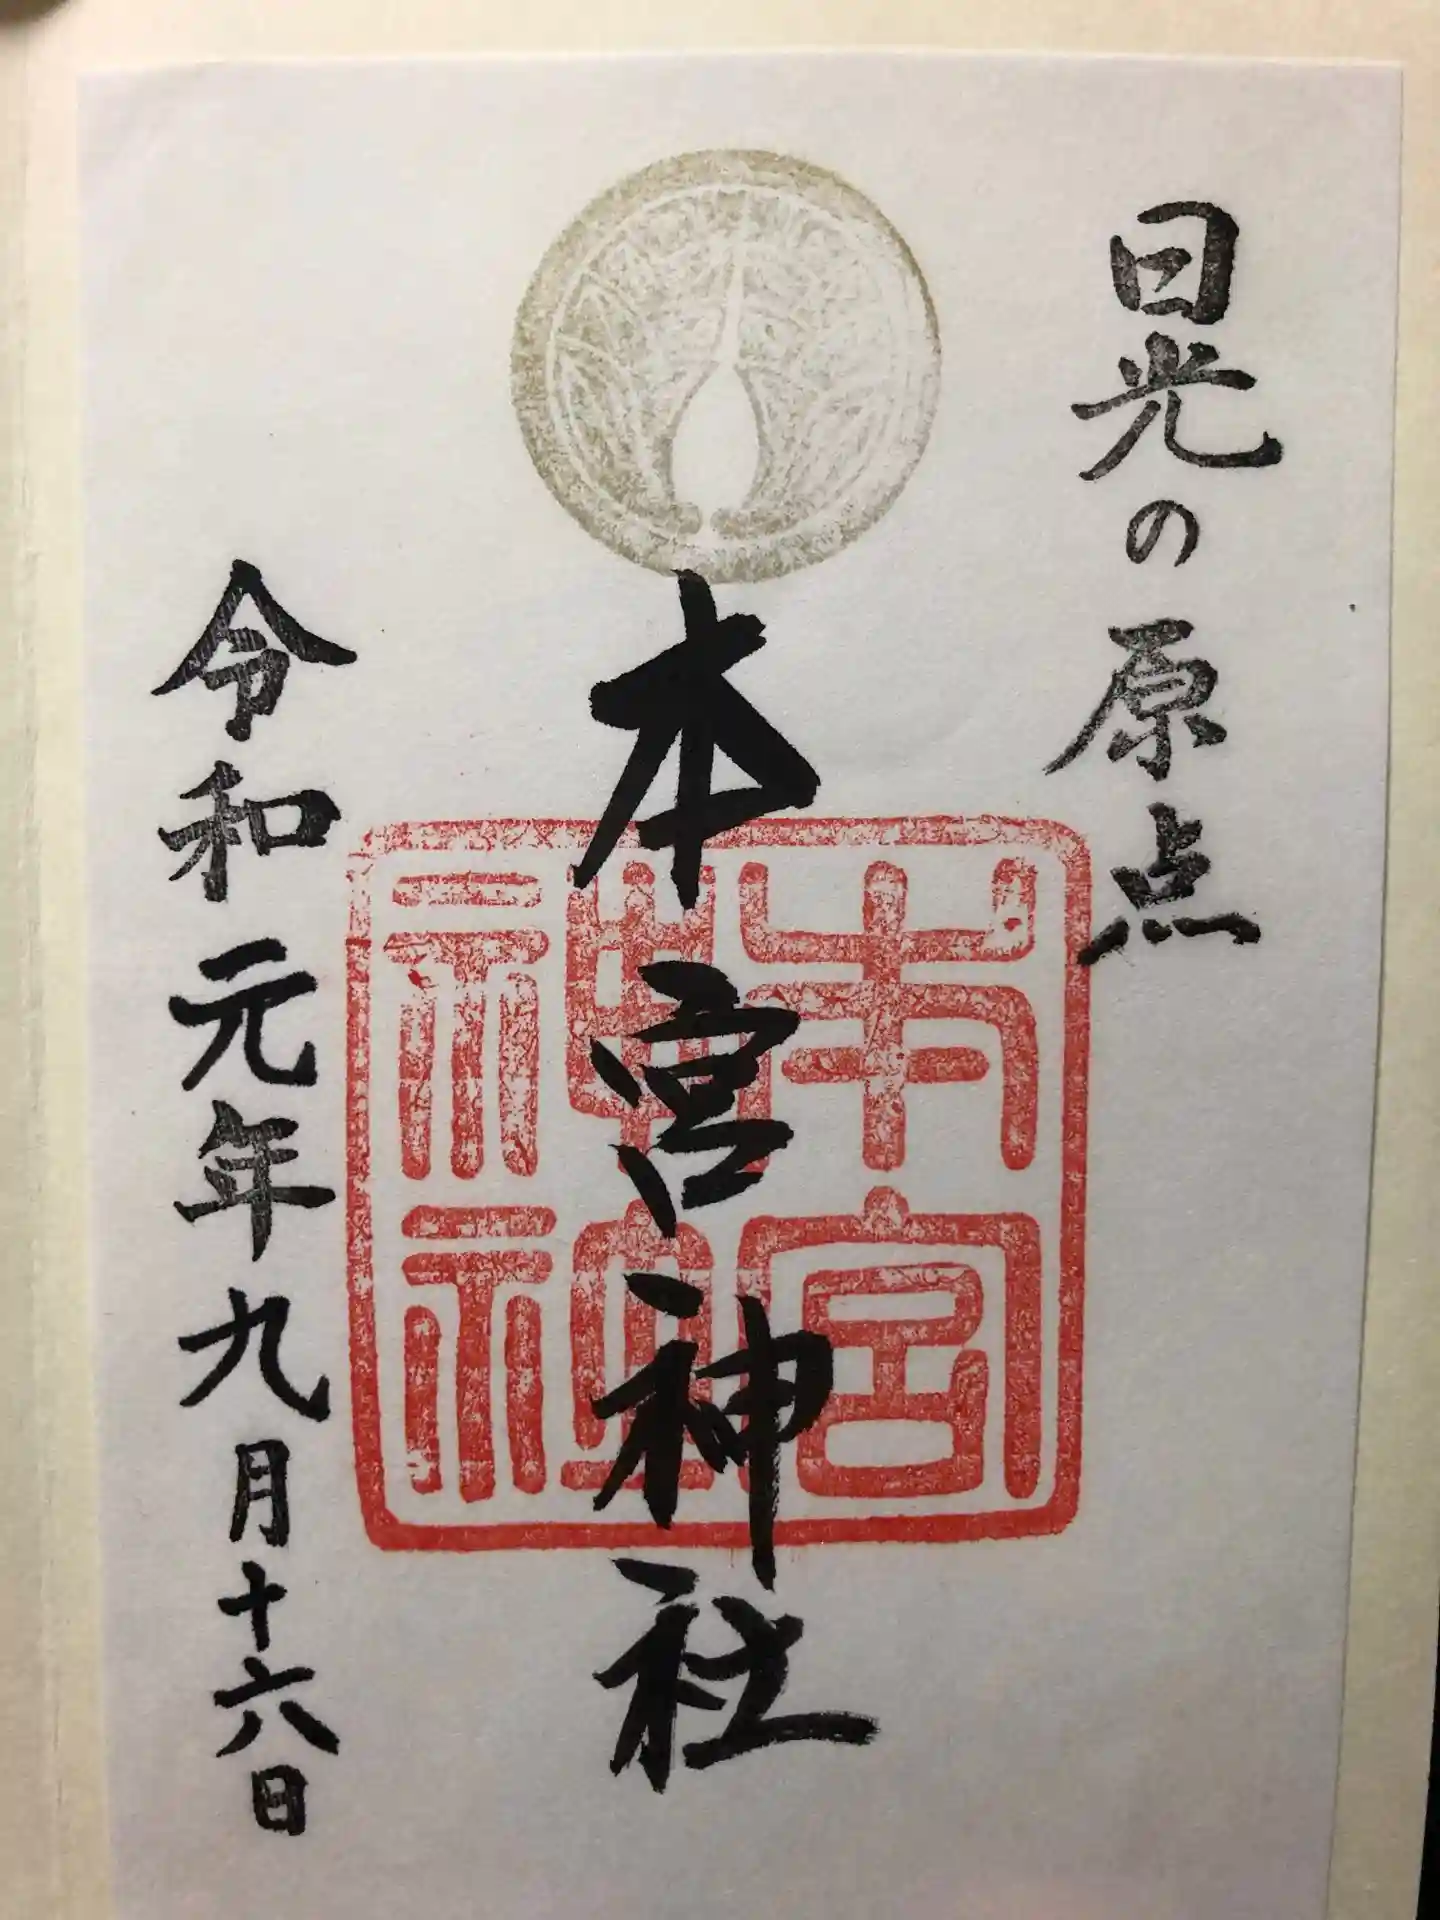 日光の原点
本宮神社
本宮神社
令和元年九月十六日